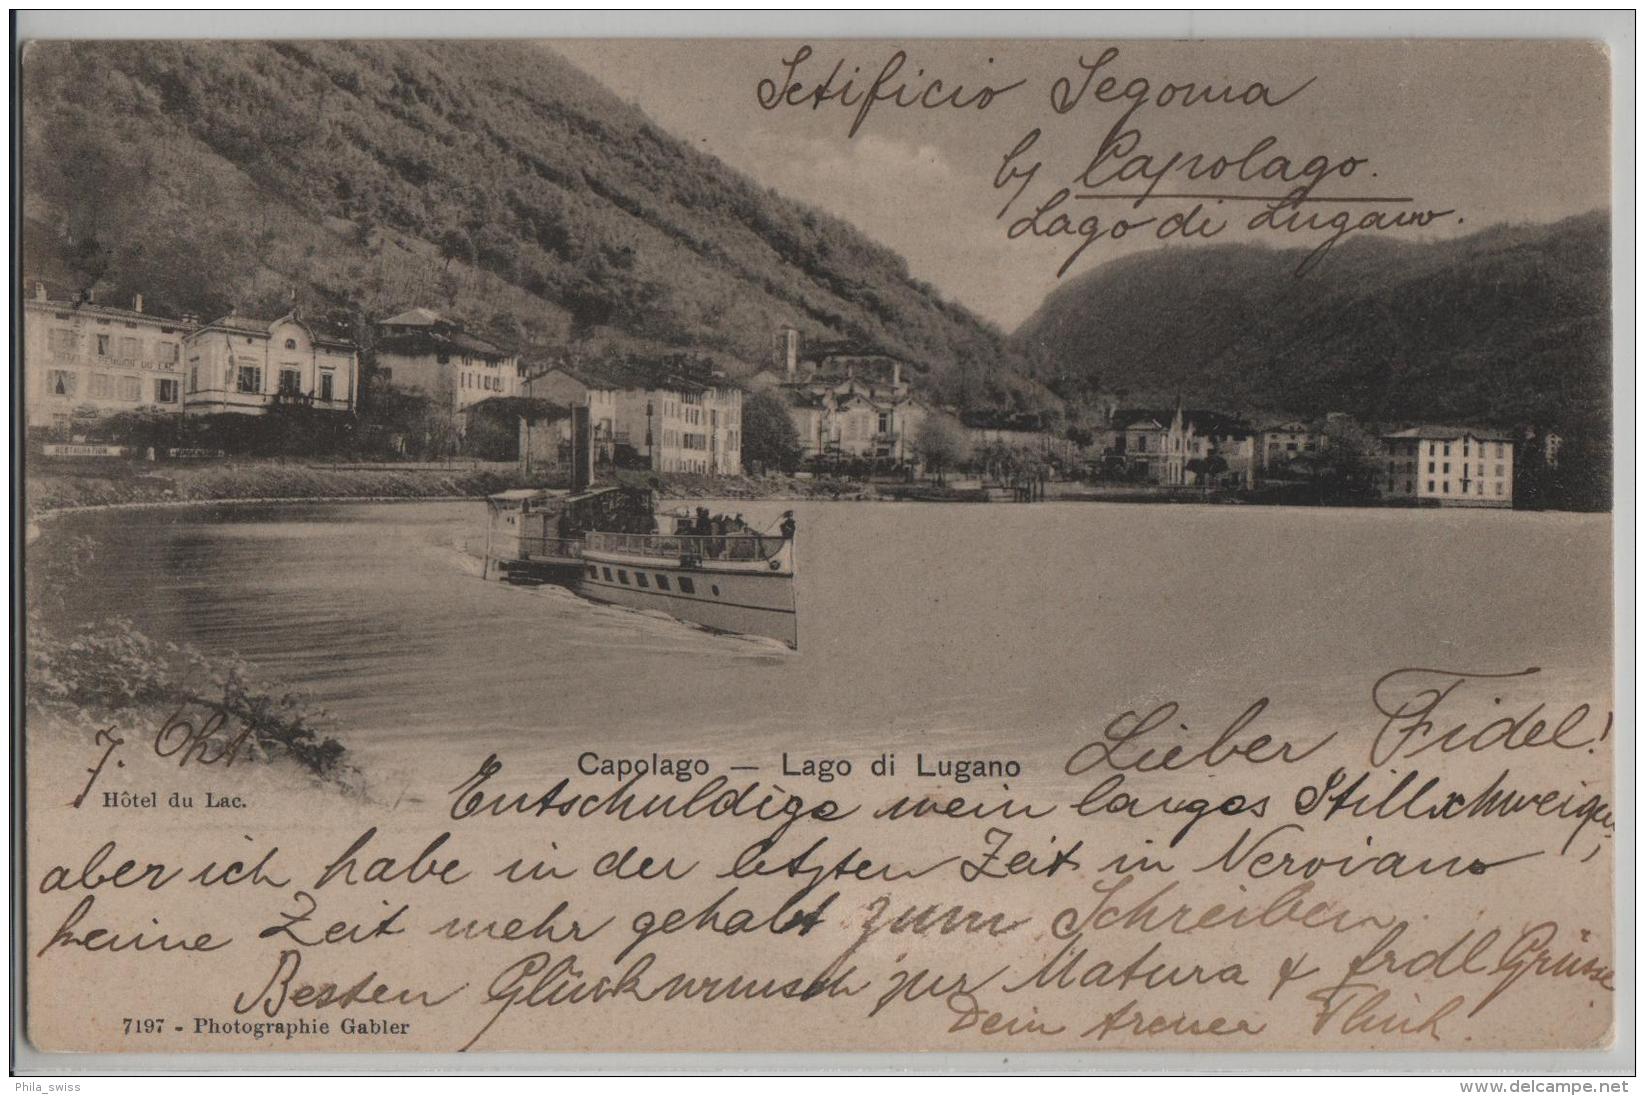 Setificio Segoma
by Capolago.
Lago di Lugano.
PENSION DU LAC
RESTAURATION
7. Okt.
Lieber Fidel!
Capolago — Lago di Lugano
Hôtel du Lac.
Entschuldige mein langes Stillschweigen,
aber ich habe in der letzten Zeit in Nerviano
keine Zeit mehr gehabt zum Schreiben.
Besten Glückwunsch zur Matura & frdl Grüsse
Dein treuer
7197 - Photographie Gabler
Phila_swiss
www.delcampe.net